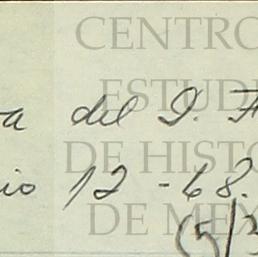 CENTRO
ESTUDI
a del D. F
DE HISTO
io 12-68.
DE MEX
(5/3